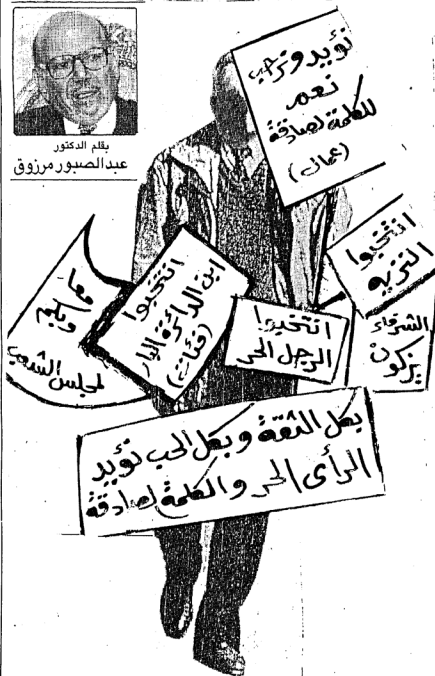 بقلم الدكتور
عبدالصبور مرزوق
نؤيد ونرحب
نعم
للكلمة لصادقة
(عمال)
انتخبوا
النزيه
الشرفاء
يزكون
انتخبوا
الرجل الحر
انتخبوا
ابن الدائرة البار
(فئات)
لمجلس الشعب
بكل الثقة وبكل الحب نؤيد
الرأى الحر والكلمة لصادقة